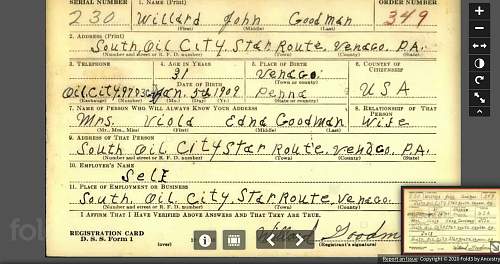 SERIAL NUMBER 1. NAME (Print) ORDER NUMBER
230 Willard John Goodman 349
(First) (Middle) (Last)
2. ADDRESS (Print)
South Oil City, Star Route, Venago, PA.
(Number and street or R. F. D. number) (Town) (County) (State)
3. TELEPHONE 4. AGE IN YEARS 5. PLACE OF BIRTH 6. COUNTRY OF CITIZENSHIP
31 Venago.
DATE OF BIRTH (Town or county)
Oil City Jan. 5th 1909 Penna USA
(Exchange) (Number) (Mo.) (Day) (Yr.) (State or country)
7. NAME OF PERSON WHO WILL ALWAYS KNOW YOUR ADDRESS 8. RELATIONSHIP OF THAT PERSON
Mrs. Viola Edna Goodman Wife
(Mr., Mrs., Miss) (First) (Middle) (Last)
9. ADDRESS OF THAT PERSON
South Oil City Star Route, Venago, PA.
(Number and street or R. F. D. number) (Town) (County) (State)
10. EMPLOYER'S NAME
Self
11. PLACE OF EMPLOYMENT OR BUSINESS
South Oil City, Star Route, Venago, PA.
(Number and street or R. F. D. number) (Town) (County) (State)
I AFFIRM THAT I HAVE VERIFIED ABOVE ANSWERS AND THAT THEY ARE TRUE.
REGISTRATION CARD
D. S. S. Form 1 (over) Willard Goodm
(Registrant's signature)
fol
Report an Issue Copyright © 2020 Fold3 by Ancestr